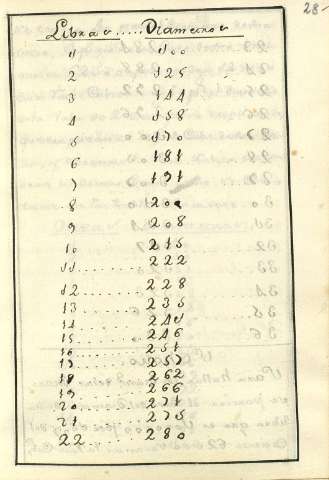 28
Libras.....Diametros
1 100
2 125
3 144
4 158
5 170
6 181
7 191
8 200
9 208
10 215
11........222
12........228
13........235
14........240
15........246
16........251
17........257
18........262
19........266
20........271
21........275
22........280